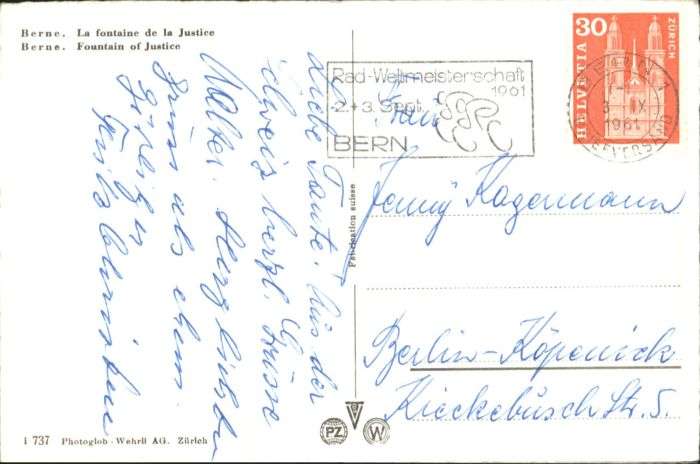 Berne. La fontaine de la Justice
Berne. Fountain of Justice
Liebe Tante. Aus der
Schweiz herzl. Grüsse
Walter. Herzlichsten
Gruss als ehem.
Görlitzer
Fabrication suisse
Rad-Weltmeisterschaft
1961
2.+3. Sept.
BERN
30
HELVETIA
ZÜRICH
BERN 1
3. IX
1961
BRIEFVERSAND
Frau
Jenny Kagermann
Berlin-Köpenick
Kieckebusch Str. 5.
i 737 Photoglob-Wehrli AG. Zürich
PZ
W